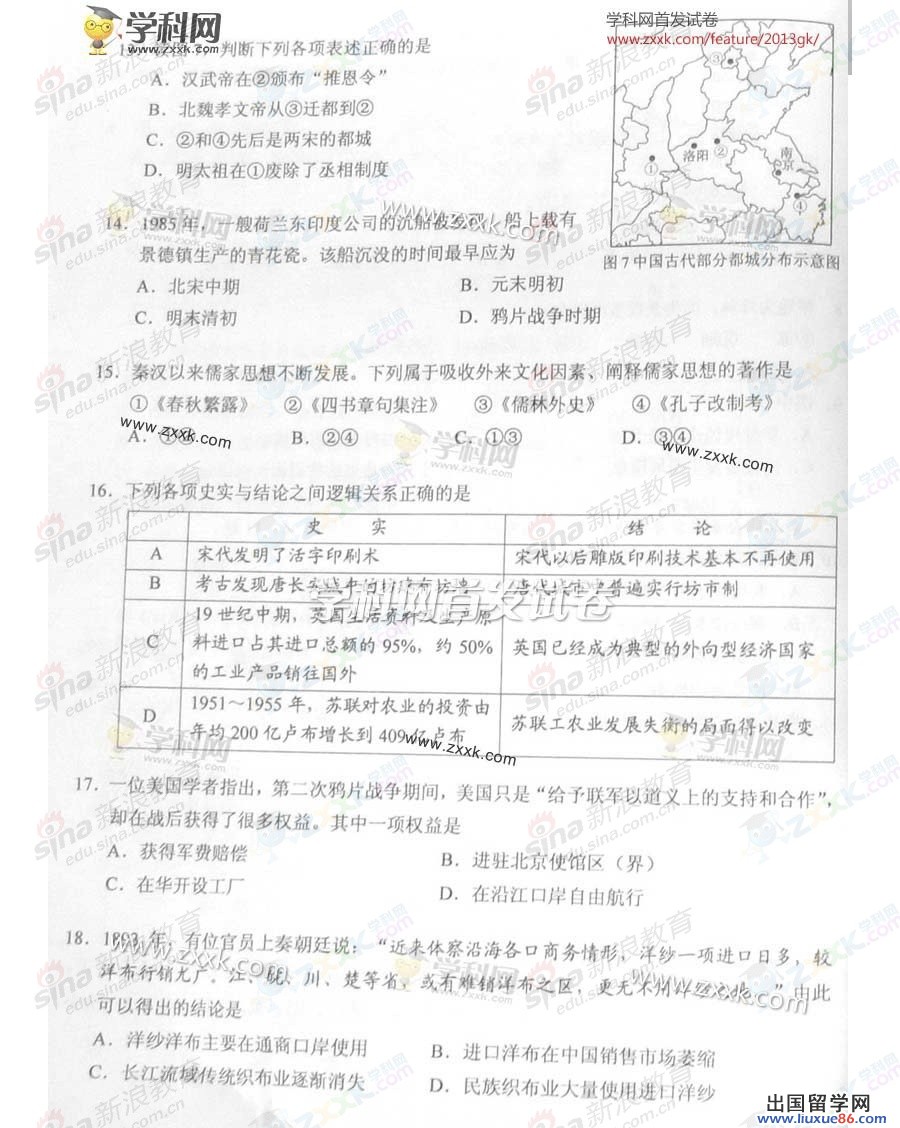 学科网
www.zxxk.com
学科网首发试卷
www.zxxk.com/feature/2013gk/
判断下列各项表述正确的是
A．汉武帝在②颁布“推恩令”
B．北魏孝文帝从③迁都到②
C．②和④先后是两宋的都城
D．明太祖在①废除了丞相制度
③
洛阳 ②
①
南京
④
图 7 中国古代部分都城分布示意图
14．1985 年，一艘荷兰东印度公司的沉船被发现，船上载有
景德镇生产的青花瓷。该船沉没的时间最早应为
A．北宋中期 B．元末明初
C．明末清初 D．鸦片战争时期
15．秦汉以来儒家思想不断发展。下列属于吸收外来文化因素、阐释儒家思想的著作是
①《春秋繁露》 ②《四书章句集注》 ③《儒林外史》 ④《孔子改制考》
A． B．②④ C．①③ D．③④
16．下列各项史实与结论之间逻辑关系正确的是
史 实 结 论
A 宋代发明了活字印刷术 宋代以后雕版印刷技术基本不再使用
B 考古发现唐长安城 普遍实行坊市制
C 19 世纪中期，英国生活资料及生产原
料进口占其进口总额的 95%，约 50%
的工业产品销往国外 英国已经成为典型的外向型经济国家
D 1951～1955 年，苏联对农业的投资由
年均 200 亿卢布增长到 409 亿卢布 苏联工农业发展失衡的局面得以改变
17．一位美国学者指出，第二次鸦片战争期间，美国只是“给予联军以道义上的支持和合作”，
却在战后获得了很多权益。其中一项权益是
A．获得军费赔偿 B．进驻北京使馆区（界）
C．在华开设工厂 D．在沿江口岸自由航行
18．1893 年，有位官员上奏朝廷说：“近来体察沿海各口商务情形，洋纱一项进口日多，较
洋布行销尤广。江、皖、川、楚等省，或有难销洋布之区，更无不用洋纱之地。”由此
可以得出的结论是
A．洋纱洋布主要在通商口岸使用 B．进口洋布在中国销售市场萎缩
C．长江流域传统织布业逐渐消失 D．民族织布业大量使用进口洋纱
出国留学网
www.liuxue86.com